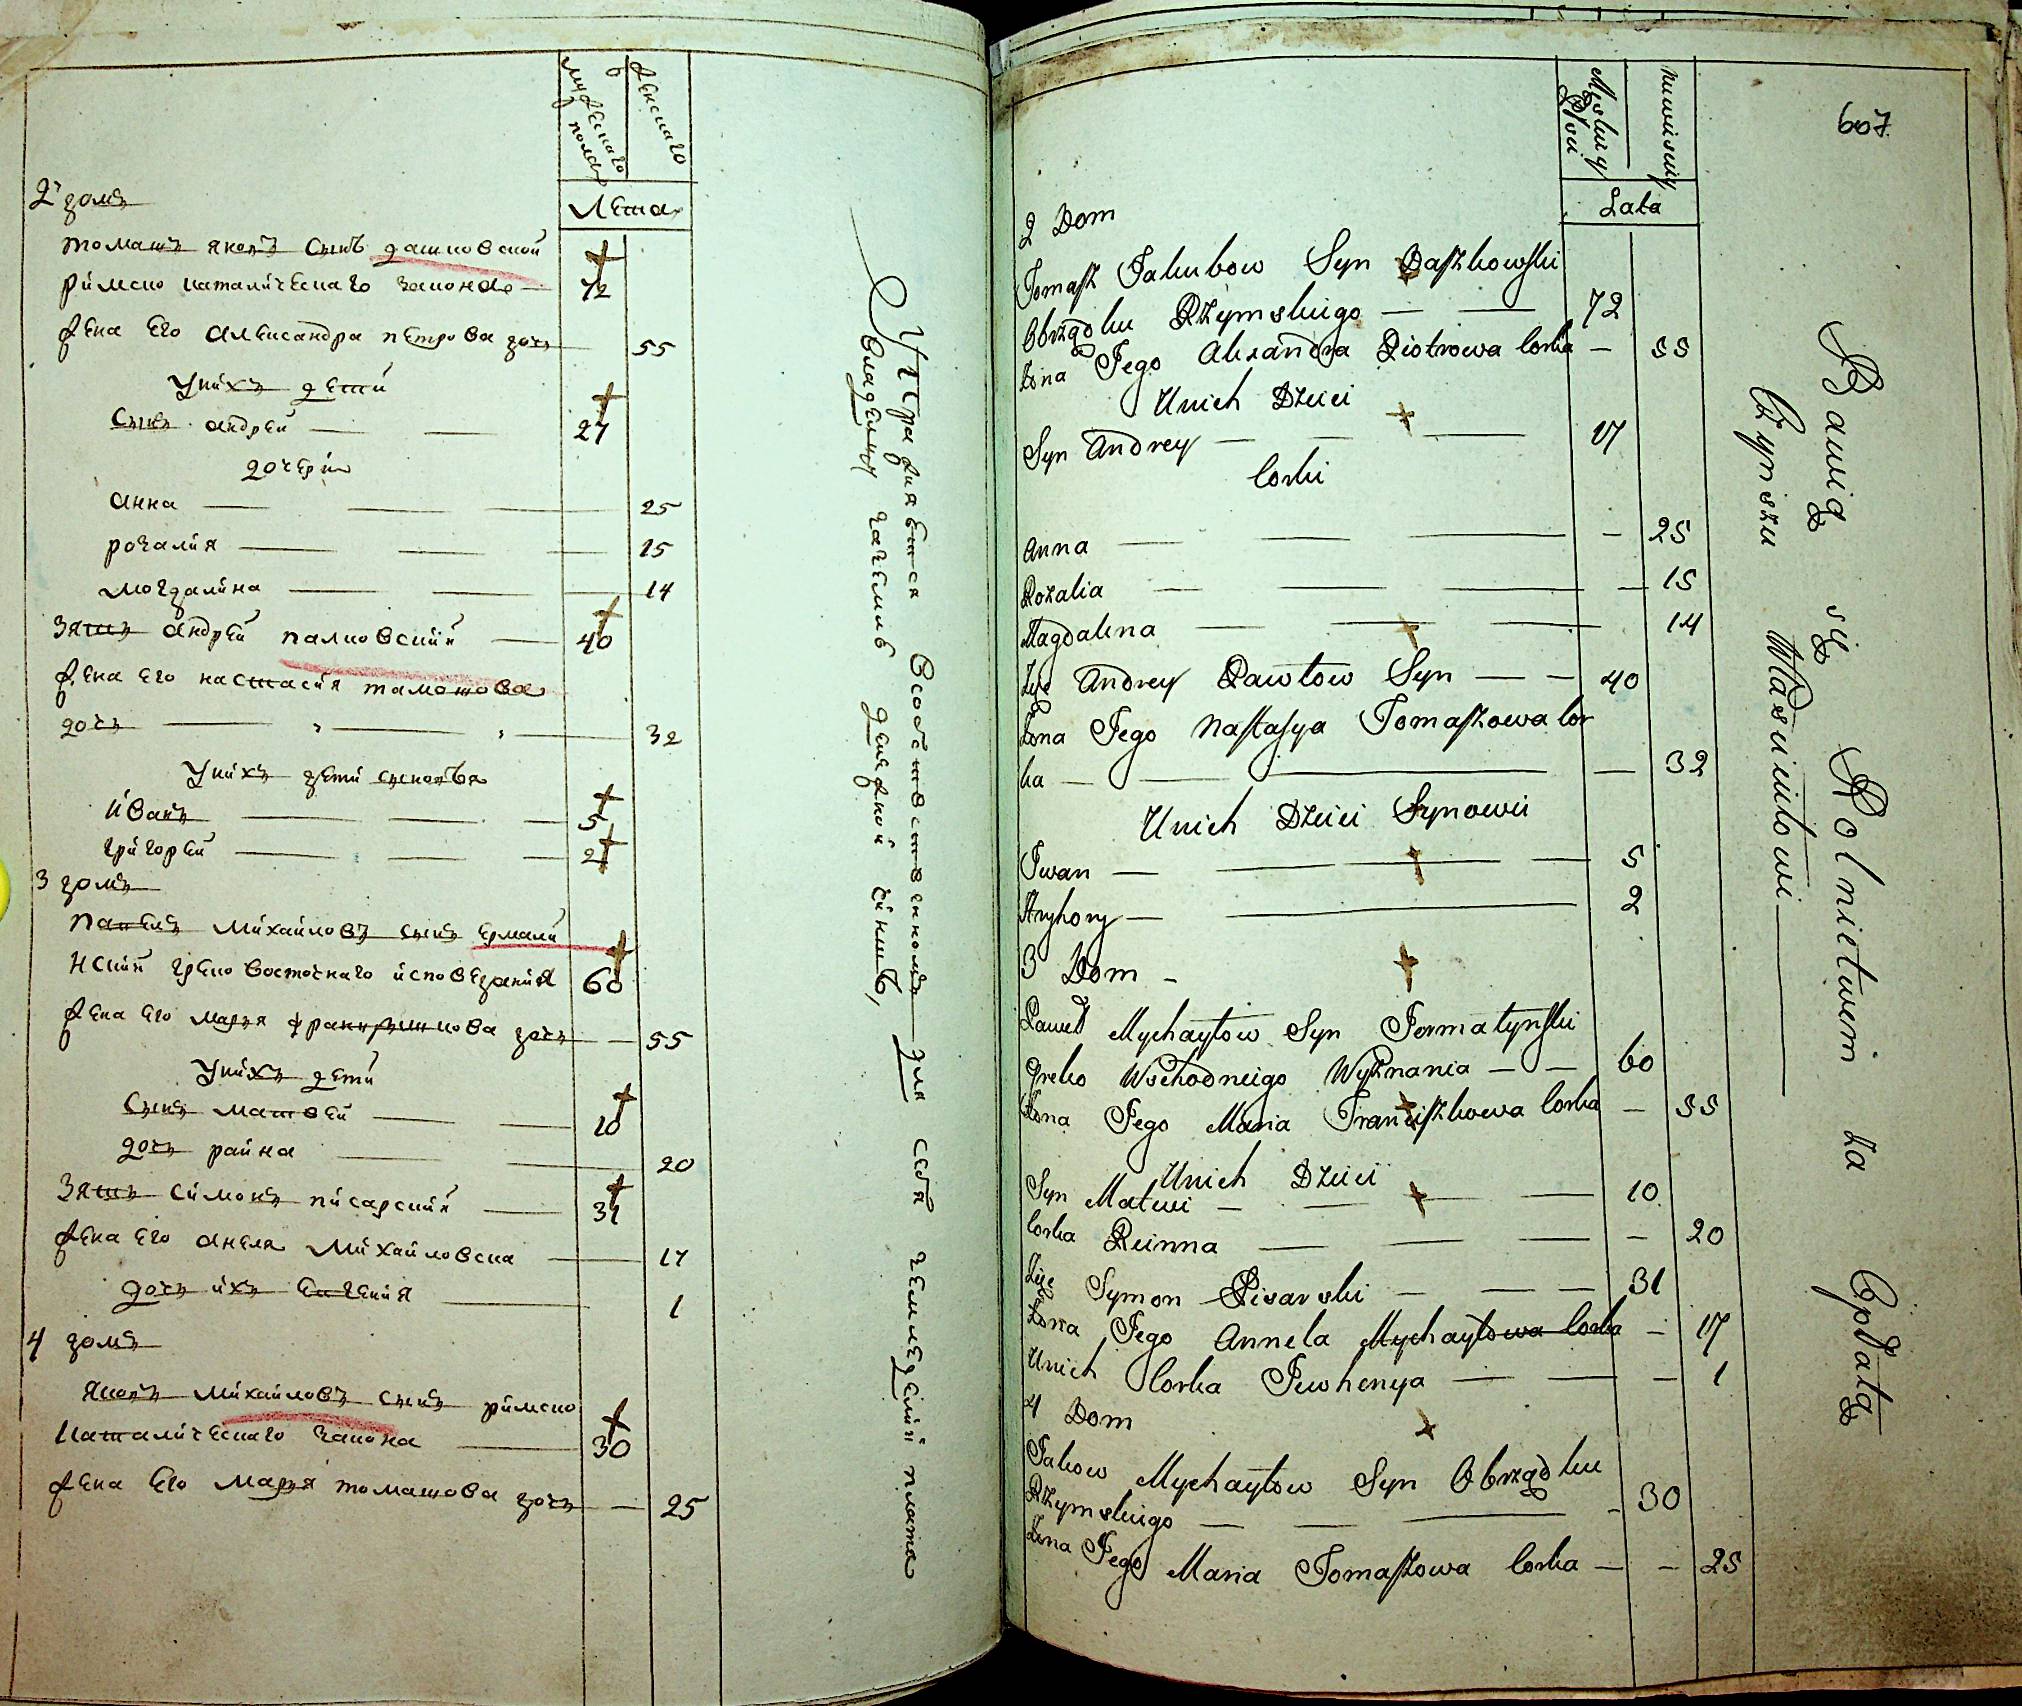 мужескаго пола
женскаго
Лета
2й домъ
томашъ яковъ сынъ дашковской
римско каталическаго закона — 72
жена Его Александра петрова дочь 55
Унихъ дети
сынъ андрей — — 27
дочери
анна — — — 25
розалия — — — 15
могдалина — — — 14
зять андрей палковский — 40
жена Его настасия тамошова
дочь — — — 32
Унихъ дети сыновья
иванъ — — — 5
григорей — — — 2
3 домъ
павелъ михайловъ сынъ ермали
нский греко восточнаго исповедания 60
жена Его марья францишкова дочь — 55
Унихъ дети
сынъ матвей — — 10
дочь райна — — 20
зять симонъ писарский — 31
жена Его анеля михайловска — 17
дочь ихъ Евгения — 1
4 домъ
яковъ михайловъ сынъ римско
каталическаго закона — 30
жена Его марья томашова дочь — 25
Упражняется всобственномъ для себя земледелии плата
владелцу зачемлю денежной чиншъ,
607
Męskiey Płci
Niewieściey
Lata
2 Dom
Tomasz Jakubow Syn Daszkowski
Obrządku Rzymskiego — — 72
Żona Jego Alexandra Piotrowa Corka — 55
Unich Dzieci
Syn Andrey — — — 17
Corki
Anna — — — - 25
Rozalia — — — — 15
Magdalena — — — 14
Zięć Andrey Pawłow Syn — — 40
Żona Jego Nastasya Tomaszowa Cor
ka — — — — 32
Unich Dzieci Synowie
Iwan — — — 5
Hryhory — — 2
3 Dom -
Paweł Mychayłow Syn Jormałynski
Greko Wschodniego Wyznania — — 60
Żona Jego Maria Franciszkowa Corka — 55
Unich Dzieci
Syn Matwi — — — 10
Corka Reinna — — — - 20
Zięć Symon Pisarski — — — 31
Żona Jego Annela Mychayłowa Corka — 17
Unich Corka Jewhenya — — — 1
4 Dom
Jakow Mychayłow Syn Obrządku
Rzymskiego — — — - 30
Żona Jego Maria Tomaszowa Corka — — 25
Bawią się Rolnictwem za Opłatą
Czynszu Własnicielowi —